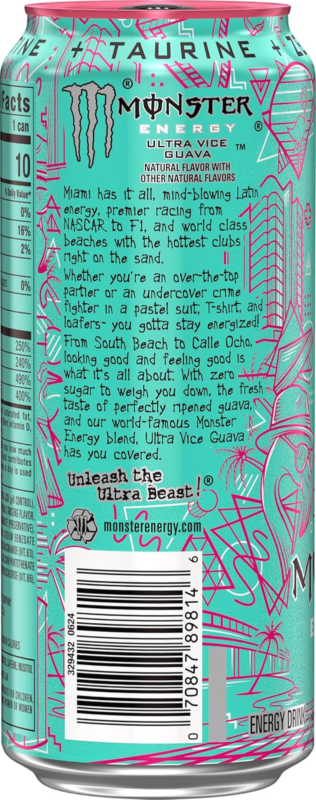 + TAURINE +
Facts
1 can
10
% Daily Value*
0%
16%
2%
0%
250%
240%
490%
400%
MONSTER
ENERGY
ULTRA VICE
GUAVA ™
NATURAL FLAVOR WITH
OTHER NATURAL FLAVORS
Miami has it all, mind-blowing Latin
energy, premier racing from
NASCAR to F1, and world class
beaches with the hottest clubs
right on the sand.
Whether you're an over-the-top
partier or an undercover crime
fighter in a pastel suit, T-shirt, and
loafers- you gotta stay energized!
From South Beach to Calle Ocho,
looking good and feeling good is
what it's all about. With zero
sugar to weigh you down, the fresh
taste of perfectly ripened guava,
and our world-famous Monster
Energy blend, Ultra Vice Guava
has you covered.
Unleash the
Ultra Beast!®
monsterenergy.com
329432 0624
0 70847 89814 6
ENERGY DRINK